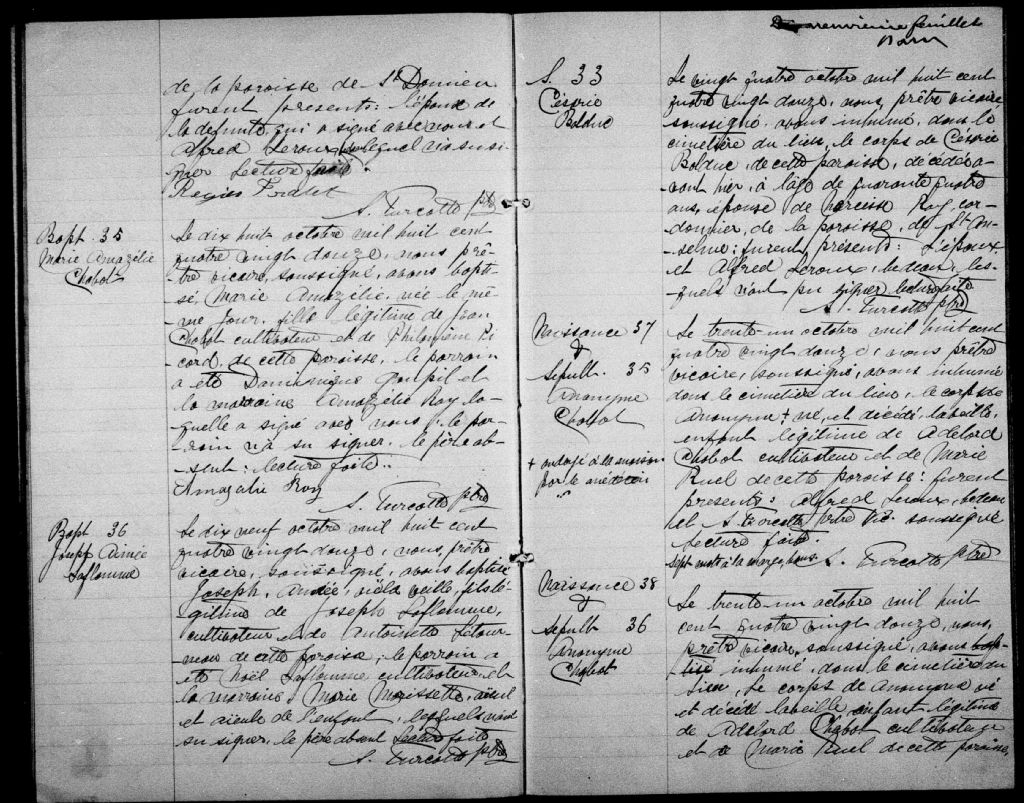 de la paroisse de St Damien
furent présents: l'époux de
la defunte qui a signé avec nous et
Alfred Leroux lequel n'a su si-
gner Lecture faite.
A. Turcotte ptre
Bapt. 35
Marie Amazélie
Chabot
Le dix huit octobre mil huit cent
quatre vingt douze, nous prê-
tre vicaire, soussigné, avons bapti-
sé, Marie Amazélie, née le mê-
me jour, fille légitime de Jean
Chabot cultivateur et de Philomène Pi-
card, de cette paroisse, le parrain
a été Dominique Goupil et
la marraine Amazélie Roy la-
quelle a signé avec nous; le par-
rain n'a su signer, le père ab-
sent: lecture faite.
Amazélie Roy
A. Turcotte ptre
Bapt 36
Joseph Aimée
Laflamme
Le dix neuf octobre mil huit cent
quatre vingt douze, nous, prêtre
vicaire, soussigné, avons baptisé
Joseph, Aimée, né la veille, fils lé-
gitime de Joseph Laflamme,
cultivateur et de Antoinette Létour-
neau de cette paroisse; le parrain a
été Noël Laflamme cultivateur, et
la marraine Marie Morissette, aïeul
et aïeule de l'enfant, lesquels n'ont
su signer, le père absent Lecture faite
A. Turcotte ptre
neuvième feuillet
S. 33
Césarie
Bolduc
Le vingt quatre octobre mil huit cent
quatre vingt douze, nous, prêtre vicaire
soussigné, avons inhumé, dans le
cimetière du lieu, le corps de Césarie
Bolduc, de cette paroisse, décédée a-
vant hier, à l'âge de quarante quatre
ans, épouse de Narcisse Roy, cor-
donnier, de la paroisse, de St An-
selme: furent présents: L'époux
et Alfred Leroux, bedeau, les-
quels n'ont pu signer lecture faite
A. Turcotte ptre
Naissance 37
&
Sépult. 35
Anonyme
Chabot
+ ondoyé à la maison
par le médecin
Le trente-un octobre mil huit cent
quatre vingt douze, nous prêtre
vicaire, soussigné, avons inhumé
dans le cimetière du lieu, le corps de
Anonyme + né, et décédé, la veille,
enfant légitime de Adélard
Chabot cultivateur et de Marie
Ruel de cette paroisse: furent
présents: Alfred Leroux, bedeau
et A. Turcotte Ptre Vic. soussigné
Lecture faite.
Sept mots à la marge, bons. A. Turcotte ptre
Naissance 38
&
Sépult 36
Anonyme
Chabot
Le trente-un octobre mil huit
cent quatre vingt douze, nous,
prêtre vicaire, soussigné, avons bap-
tisé inhumé, dans le cimetière du
lieu, le corps de Anonyme né
et décédé la veille, enfant légitime
de Adélard Chabot cultivateur
et de Marie Ruel de cette paroisse,